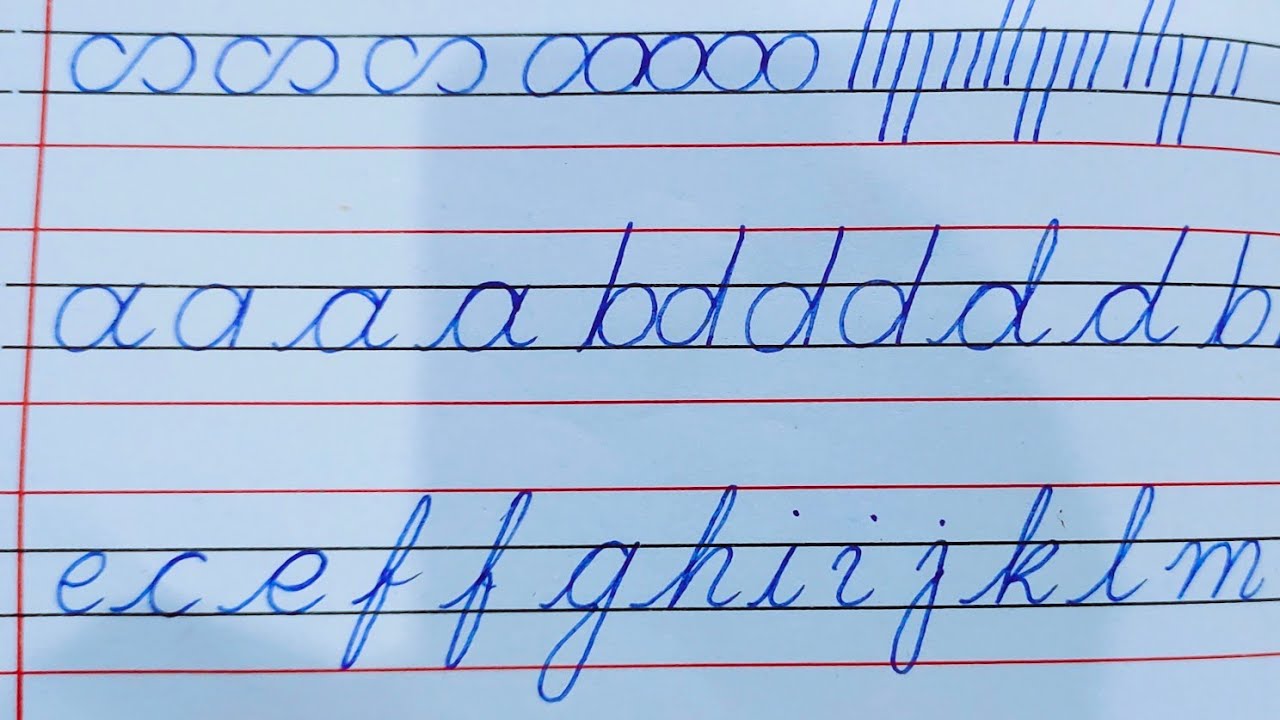 a a a a b d d d d d b
e c e f f g h i i j k l m